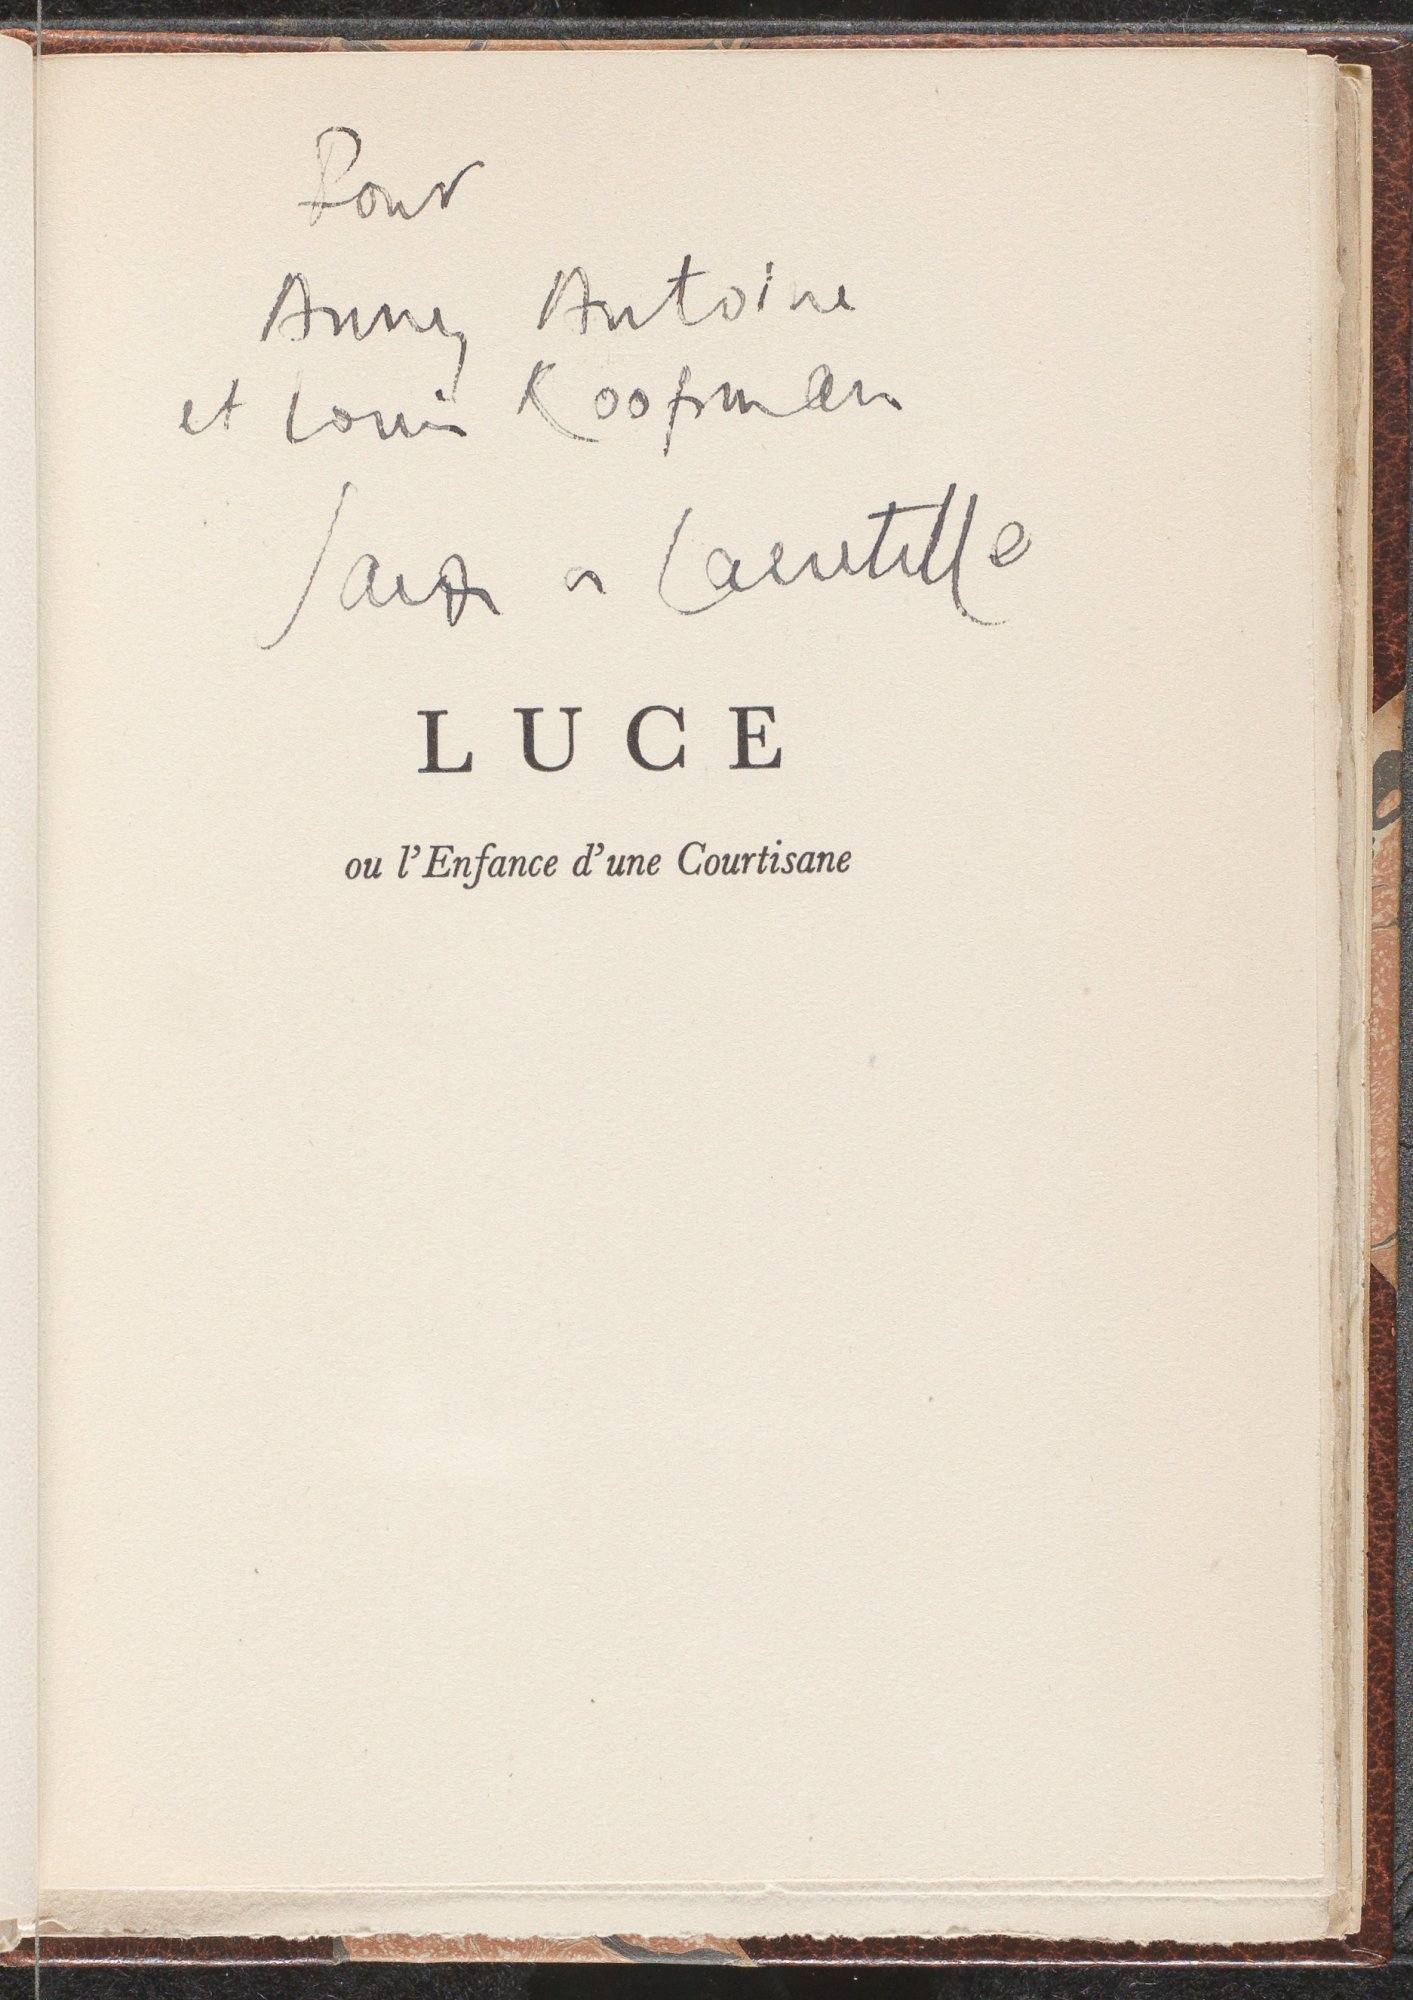 Pour
Anny Antoine
et Louis Koopman
Jacques de Lacretelle
LUCE
ou l'Enfance d'une Courtisane